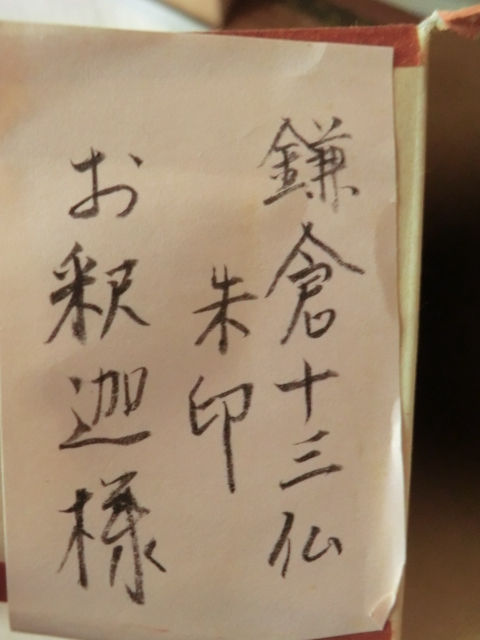 鎌倉十三仏
朱印
お釈迦様